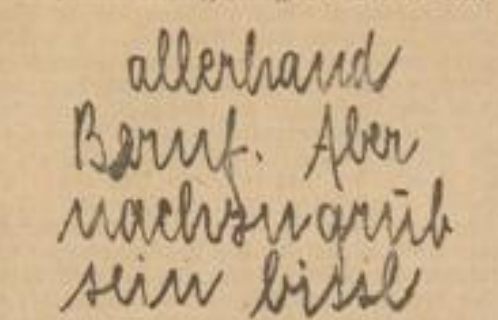 allerhand
Beruf. Aber
nachzugrüb
sein bissl